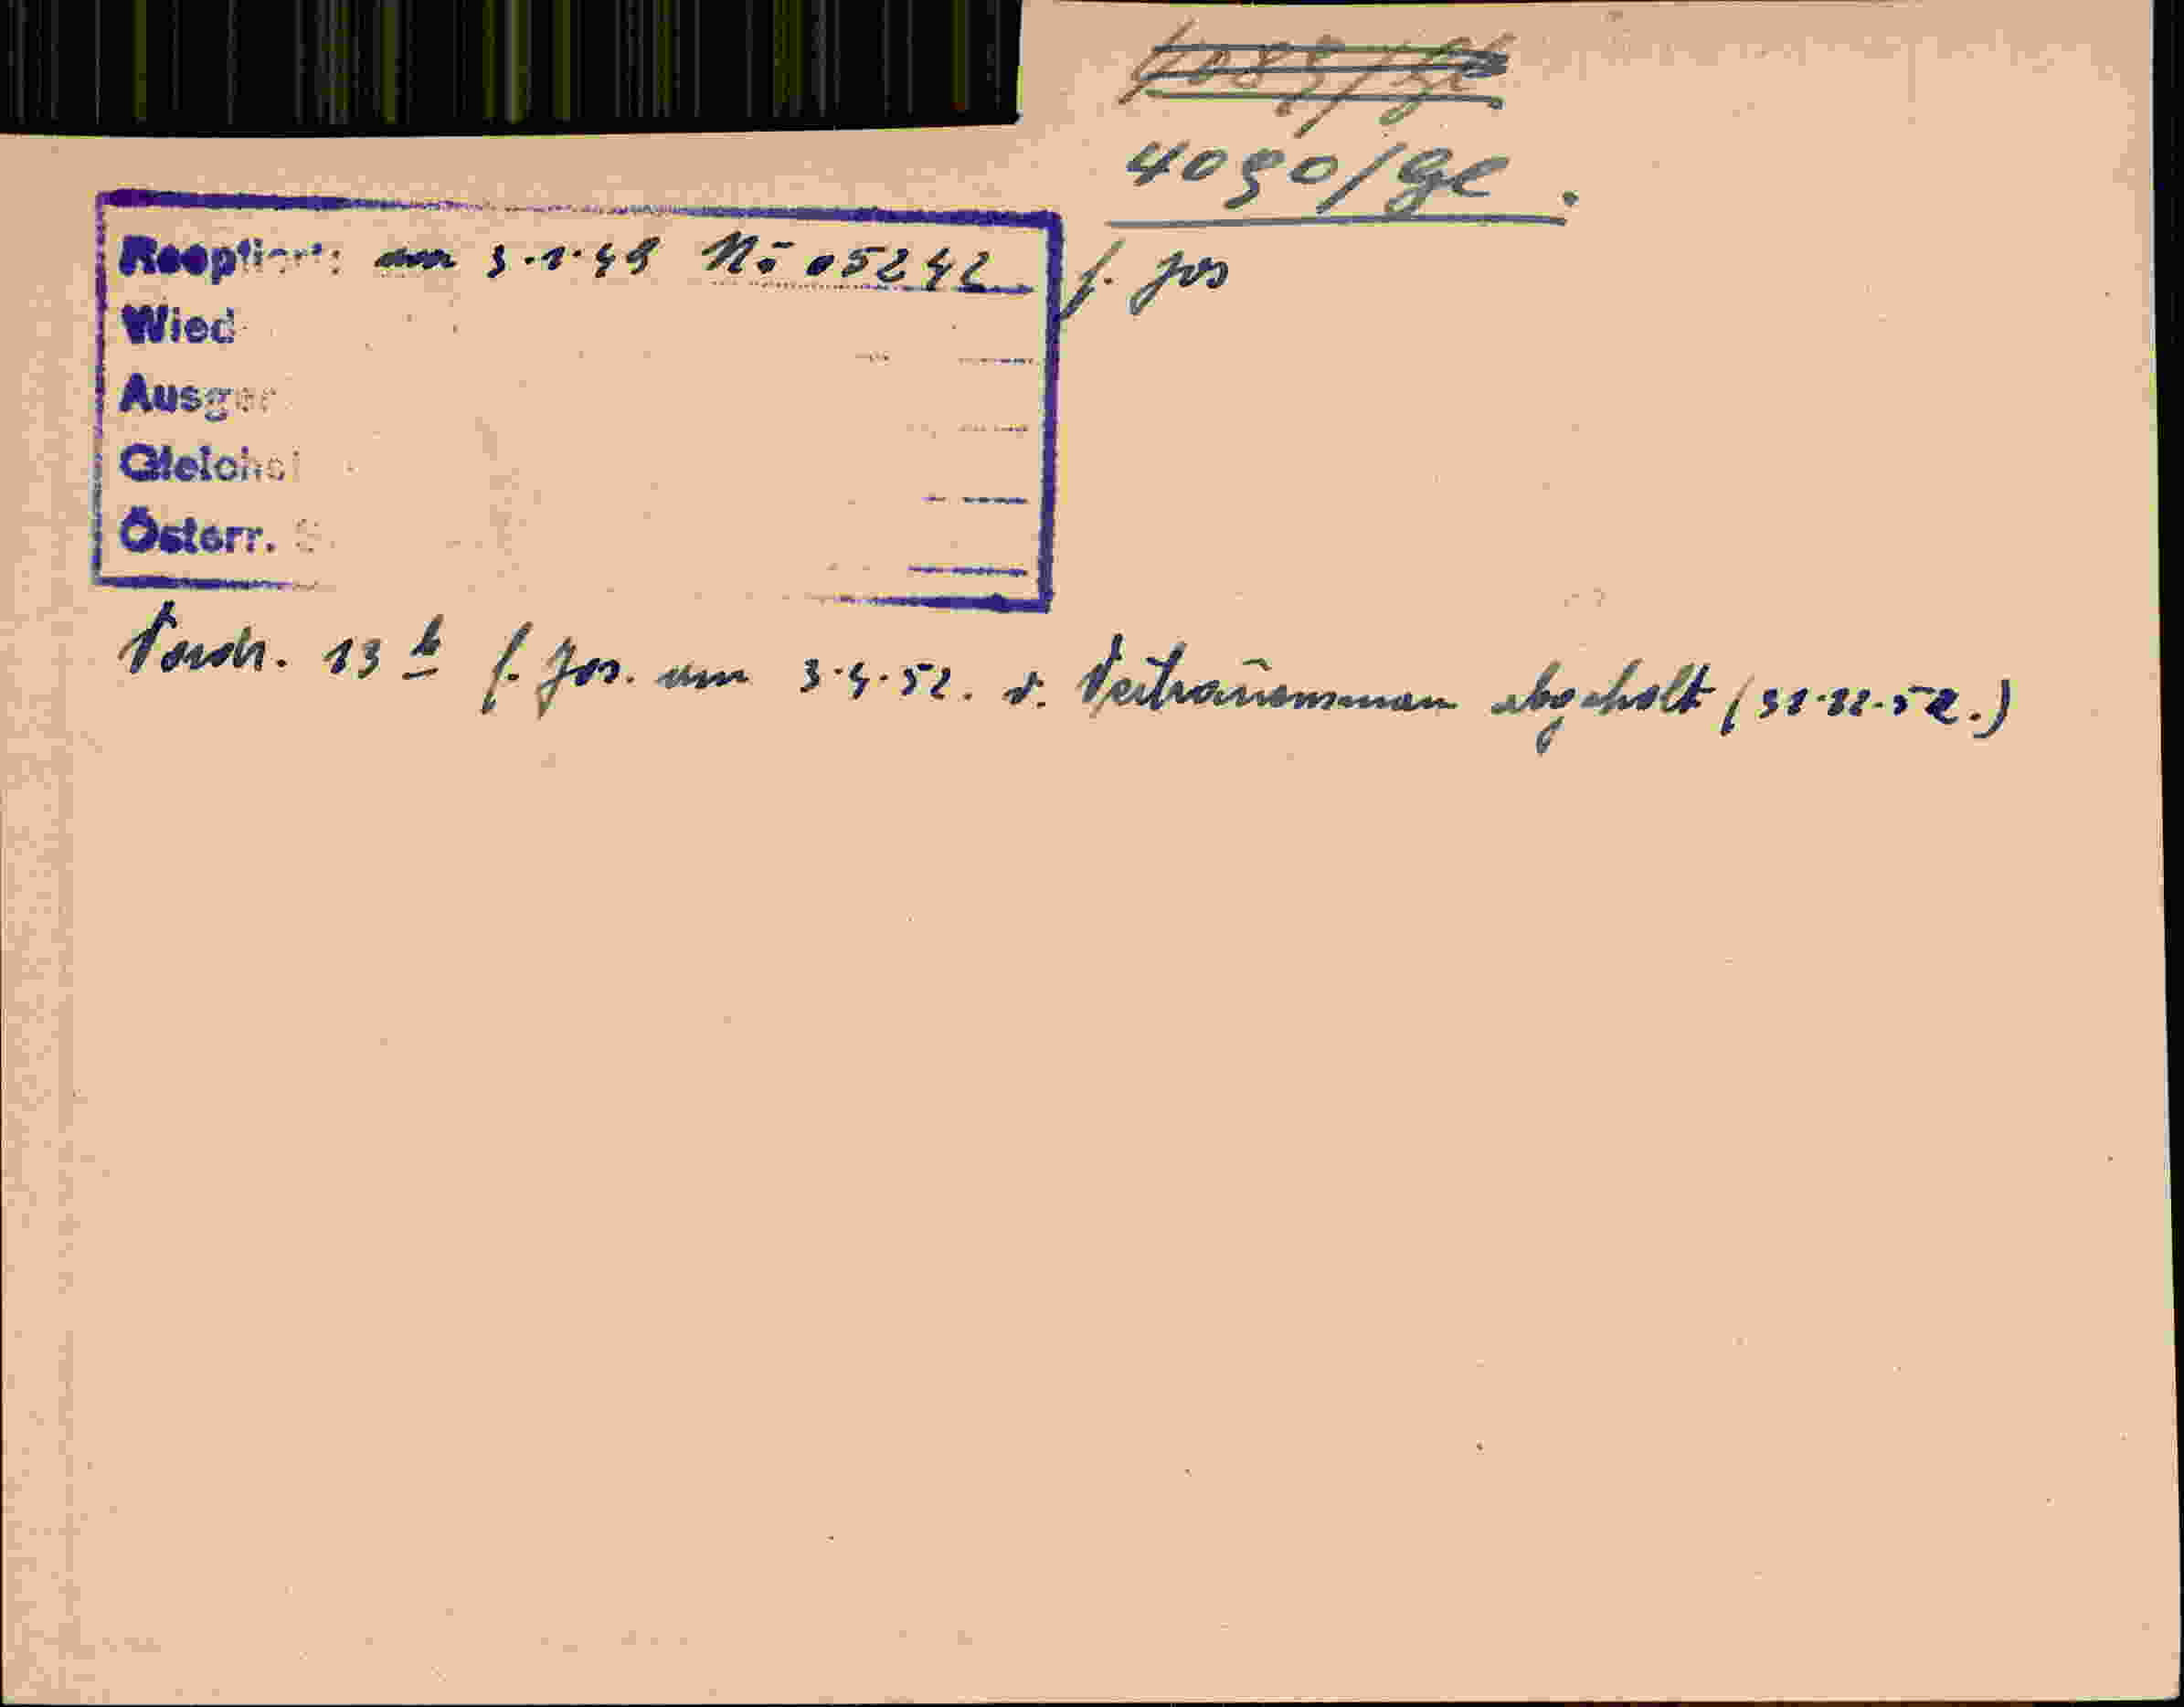 4090/Gl.
Reoptiert: am 3.1.49 No 05242 f. Jos
Wied
Ausger
Gleichst
Österr. S
Vordr. 13 b f. Jos. am 3.4.52. v. Vertrauensmann abgeholt (31.12.52.)